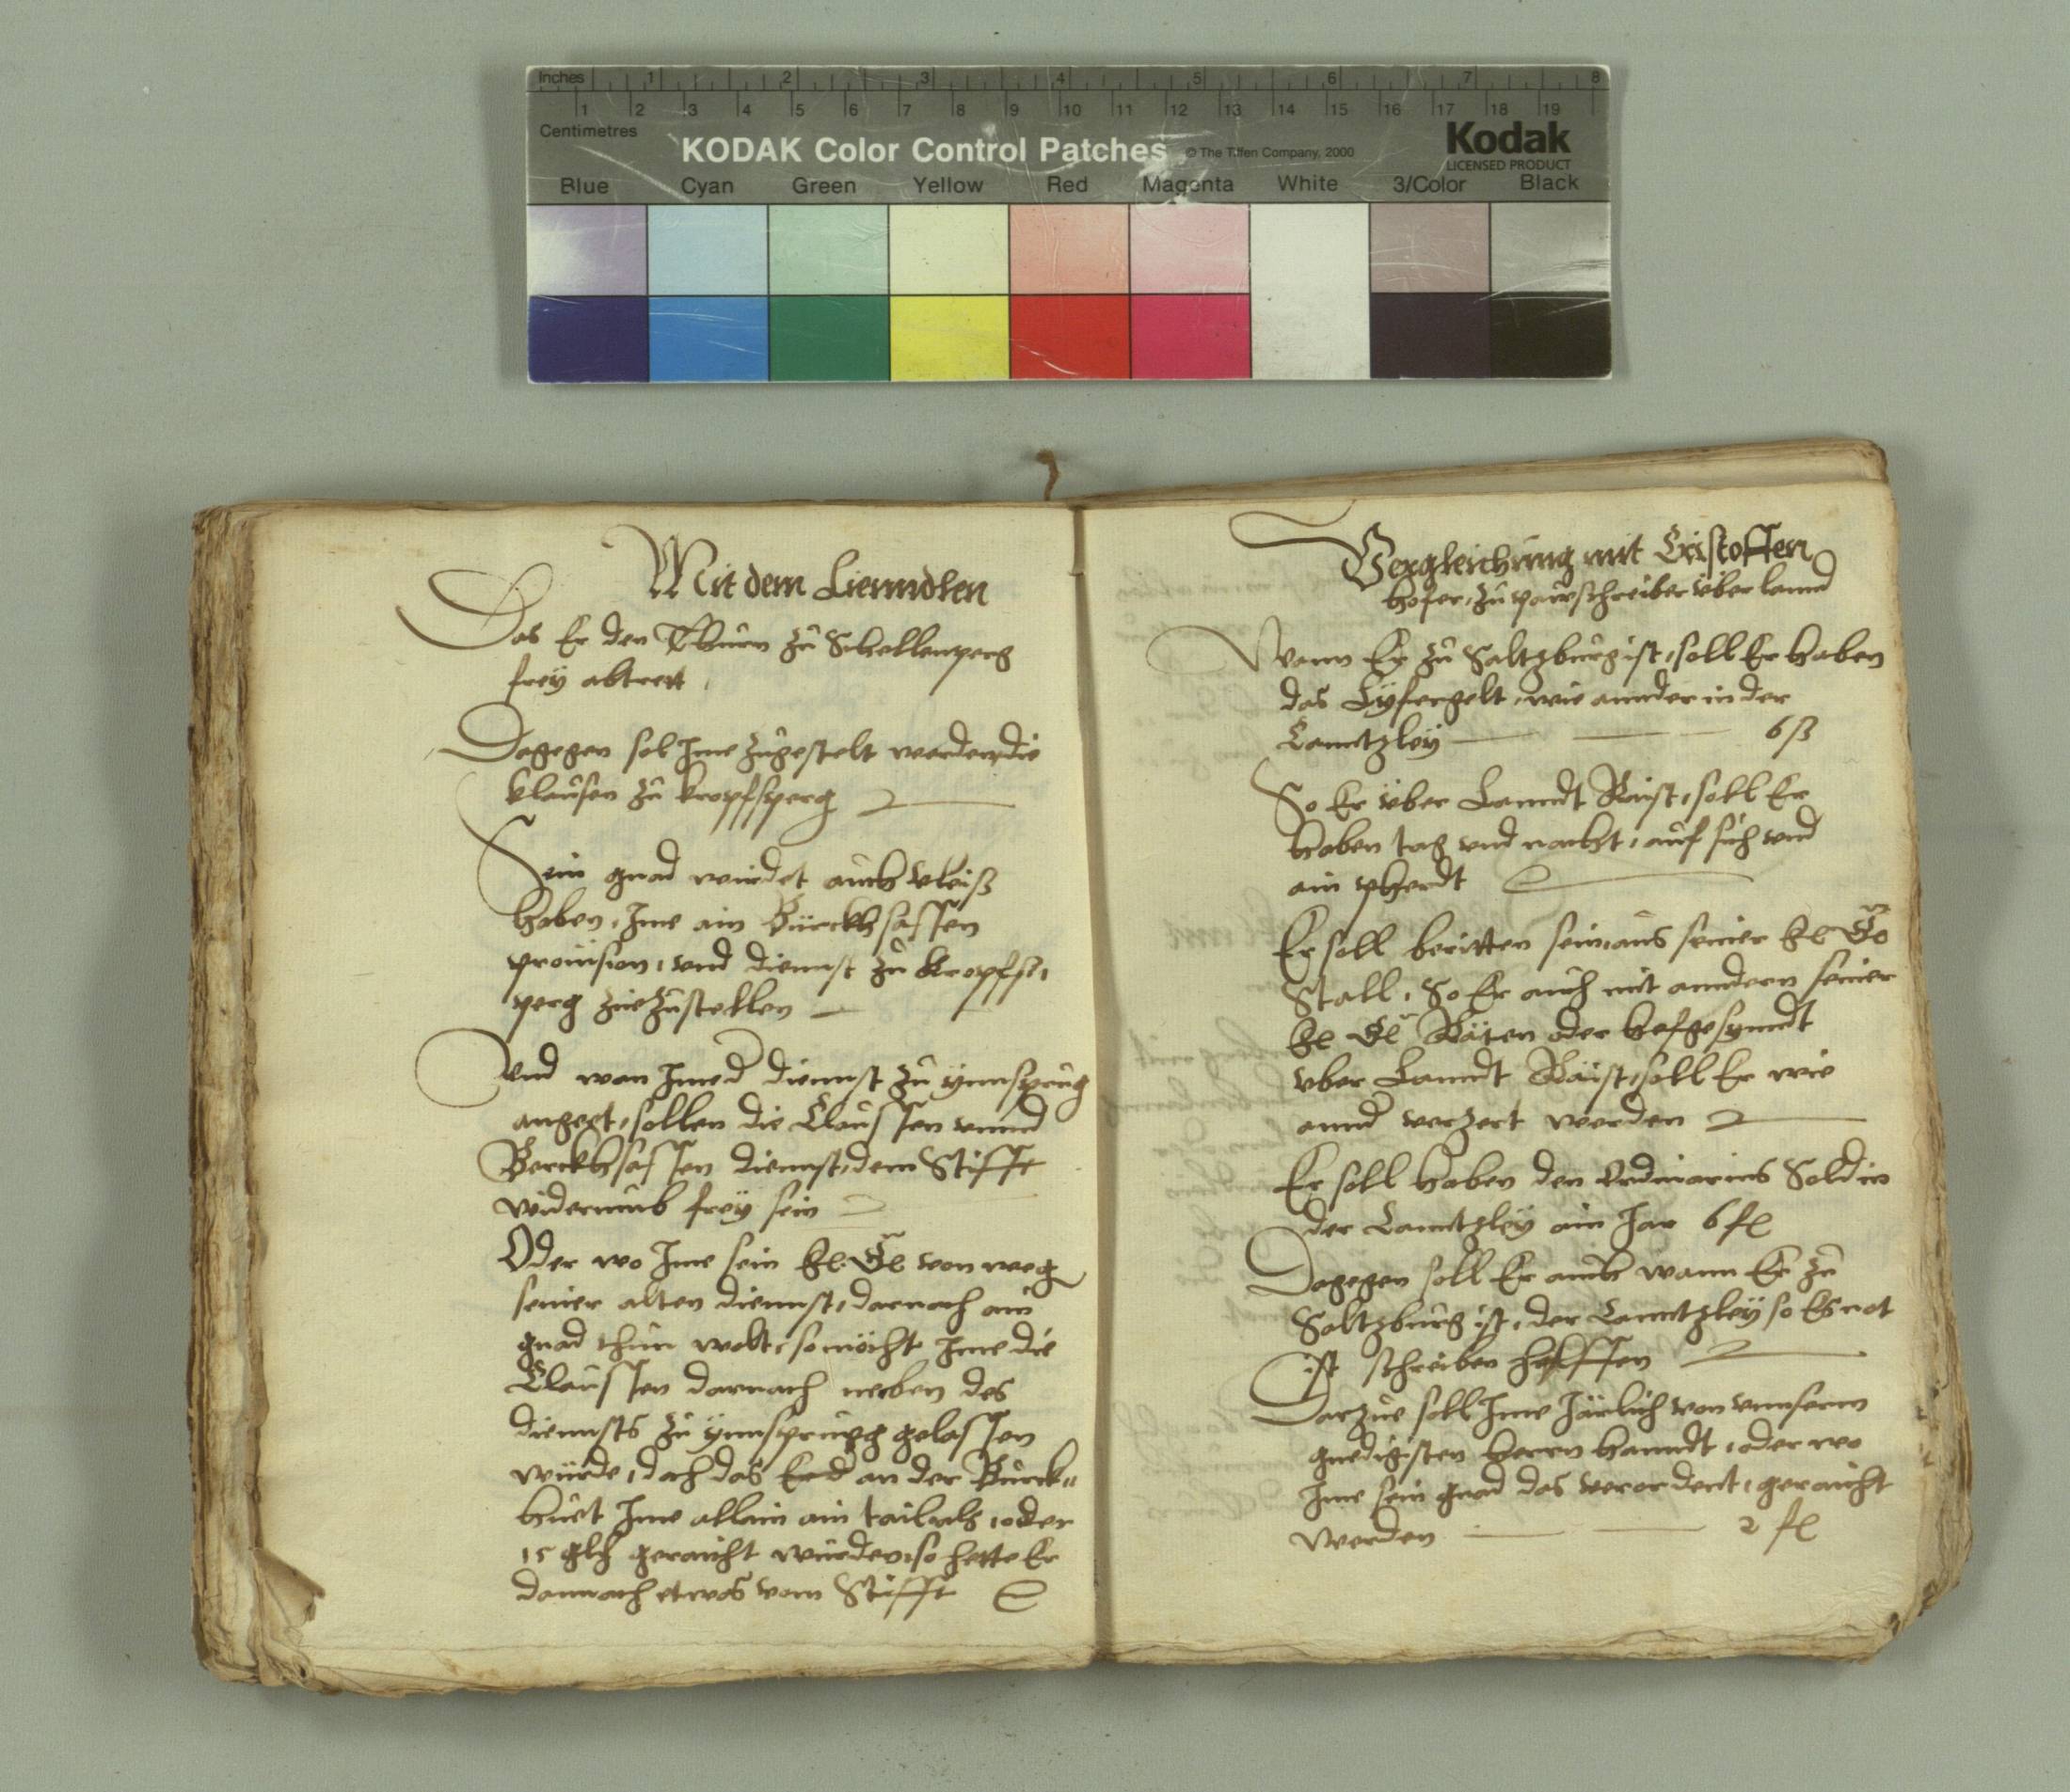 Inches 1 2 3 4 5 6 7 8
1 2 3 4 5 6 7 8 9 10 11 12 13 14 15 16 17 18 19
Centimetres
KODAK Color Control Patches © The Tiffen Company, 2000
Kodak
LICENSED PRODUCT
Blue Cyan Green Yellow Red Magenta White 3/Color Black
Mit dem Lienndlen
Das Er den Thurn zu Schellenperg
frey abtrett
Dagegen sol Ime zugestelt werden, die
klausen zu kropfsperg
Sein gnad wirdet auch vleis
haben, Ime ain Bürckhsassen
prouision, vnd diennst zu kropfs,
perg zuezustellen
Vnd wan Ime d diennst zu ynnsprug
angeet, sollen die Claussen vnnd
Berckhsassen diennst, dem Stifft
widerumb frey sein
Oder wo Ime sein von weg
seiner alten diennst, darnach ain
gnad thun wolt, so möcht Ime die
Claussen darnach neben des
diennsts zu ynnsprugg gelassen
würde, doch das an der Burck
huet Ime allain ain tail als, oder
15 geraicht würden, so hette Er
dannach etwas vom Stifft
Vergleichung mit Cristoffen
hofer, zu pawschreiber über lannd
Wann Er zu Saltzburg ist, soll Er haben
das Lyfergelt, wie annder in der
Canntzley 6 ß
So Er über Lanndt Raist, soll Er
haben tag vnd nacht, auf sich vnd
ain pherdt
Er soll beritten sein, aus seiner
Stall, So Er auch mit anndern seiner
Räten oder hofgesynndt
vber Lanndt Raist, soll Er wie
annd verzert werden
Er soll haben den Ordinarius Sold in
der Canntzley ain Jar 6 fl
Dagegen soll Er auch wann Er zu
Saltzburg ist, der Canntzley so Es not
ist schreiben helffen
Darzue soll Ime Järlich von vnnserm
gnedigisten herrn hanndt, oder wo
Ime sein gnad das verordent, geraicht
werden 2 fl